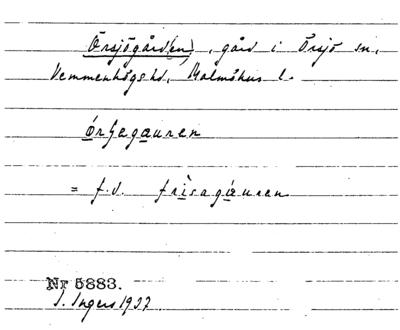 Örsjögård(en), gård i Örsjö sn,
Vemmenhögs hd, Malmöhus l.
órʃagauren
= f.d. frìsagáuren
Nr 5883.
I. Ingers 1937